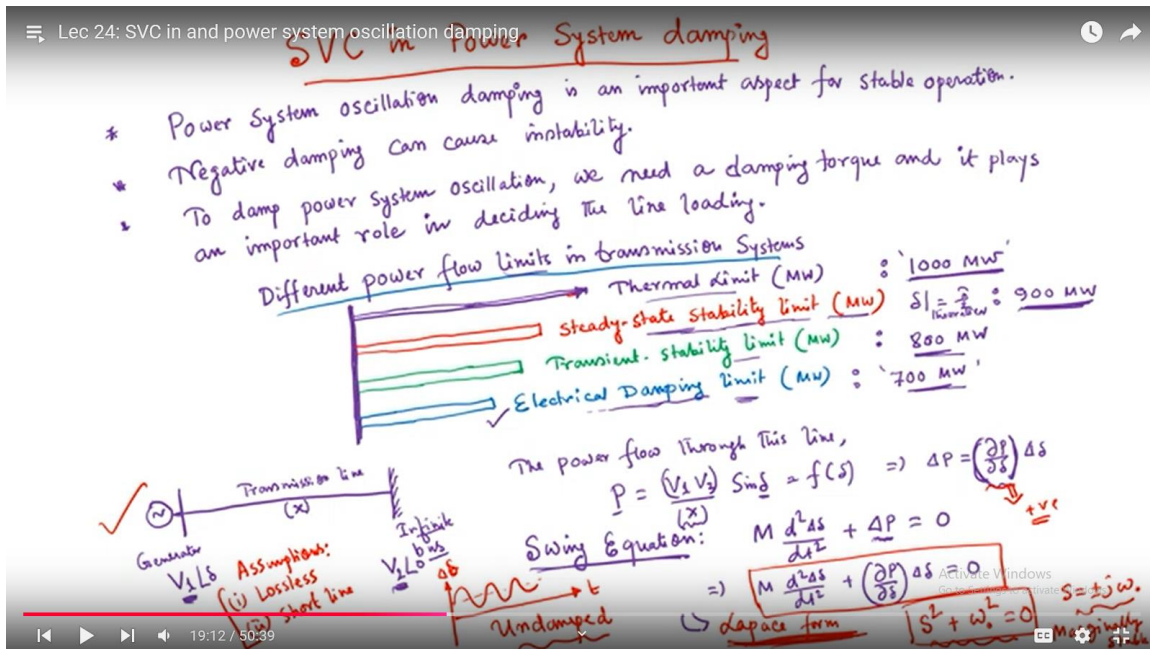 Lec 24: SVC in and power system oscillation damping
SVC in Power System damping
* Power System oscillation damping is an important aspect for stable operation.
* Negative damping can cause instability.
* To damp power system oscillation, we need a damping torque and it plays
an important role in deciding the line loading.
Different power flow limits in transmission Systems
Thermal Limit (MW) : '1000 MW'
Steady-state stability limit (MW) δ| = : 900 MW
Transient-stability limit (MW) : 800 MW
✓ Electrical Damping limit (MW) : '700 MW'
The power flow through this line,
P = (V₁ V₂)/(x) Sinδ = f(δ) => ΔP = (∂P/∂δ) Δδ
+ve
Transmission line
(x)
Generator
V₁∠δ
Infinite
bus
V₂∠0
Assumptions:
(i) Lossless
(ii) Short line
Δδ
t
Undamped
Swing Equation: M d²Δδ/dt² + ΔP = 0
=> M d²Δδ/dt² + (∂P/∂δ) Δδ = 0
Lapace form S² + ω₀² = 0
S = ±jω₀
Marginally
Activate Windows
19:12 / 50:39
CC